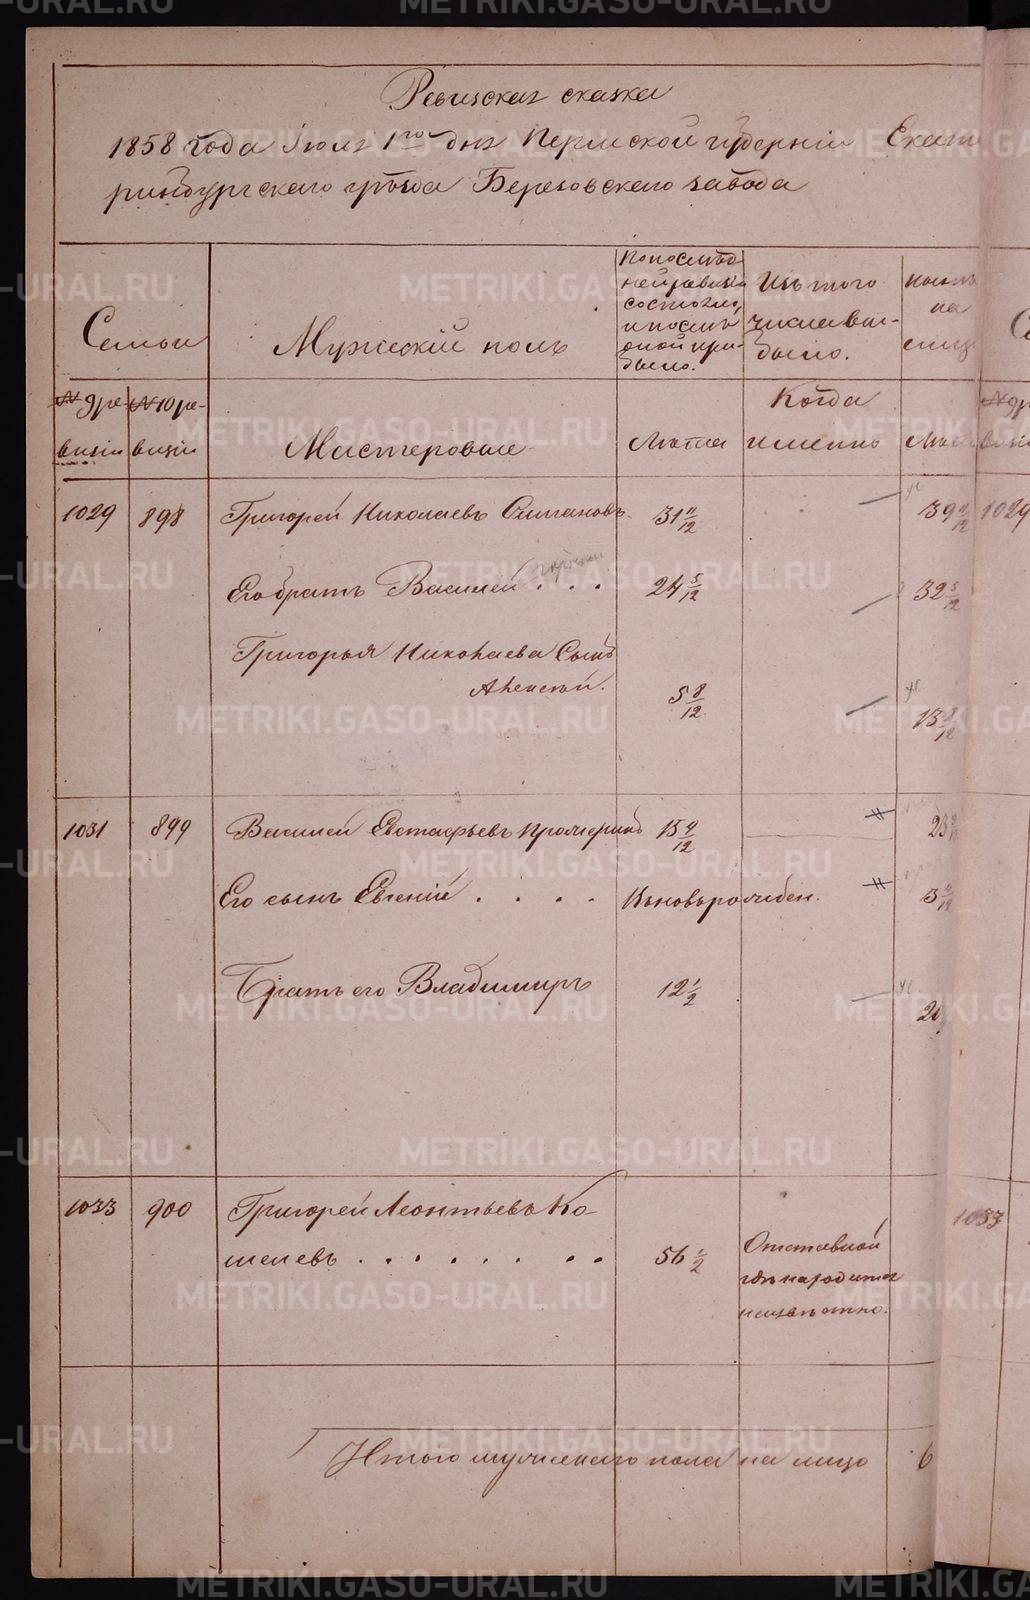 Ревизская сказка
1858 года Iюля 1го дня Пермской губернiи Екате
ринбургскаго уѣзда Березовскаго завода
Семьи
Мужескiй полъ
По послѣд
ней ревизiи
состояло,
и послѣ
оной при-
было.
Изъ того
числа вы-
было.
на
лицо
№ 9 ре
визiи
№ 10 ре-
визiи
Мастеровые
Лѣта
Когда
именно
Лѣта
1029 898 Григорей Николаевъ 31 39 1029
Его братъ Василей . . . 24 5/12 32 5/12
Григорья Николаева Сынъ
Алексѣй. 5 8/12 13
1031 899 Василей Евстафьевъ 15 23
Его сынъ Евгенiй . . . . Вновьрожден.
Братъ его Владимиръ 12 1/2 20
1033 900 Григорей Леонтьевъ Ко-
шелевъ . . . . . . . . 56 1/2 Отставной
гдѣ находится
неизвѣстно.
1033
Итого мужескаго пола на лицо 6
METRIKI.GASO-URAL.RU